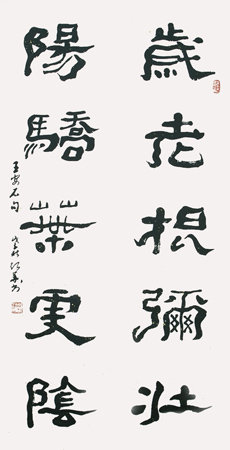 歲老根彌壯
陽驕葉更陰
王安石句